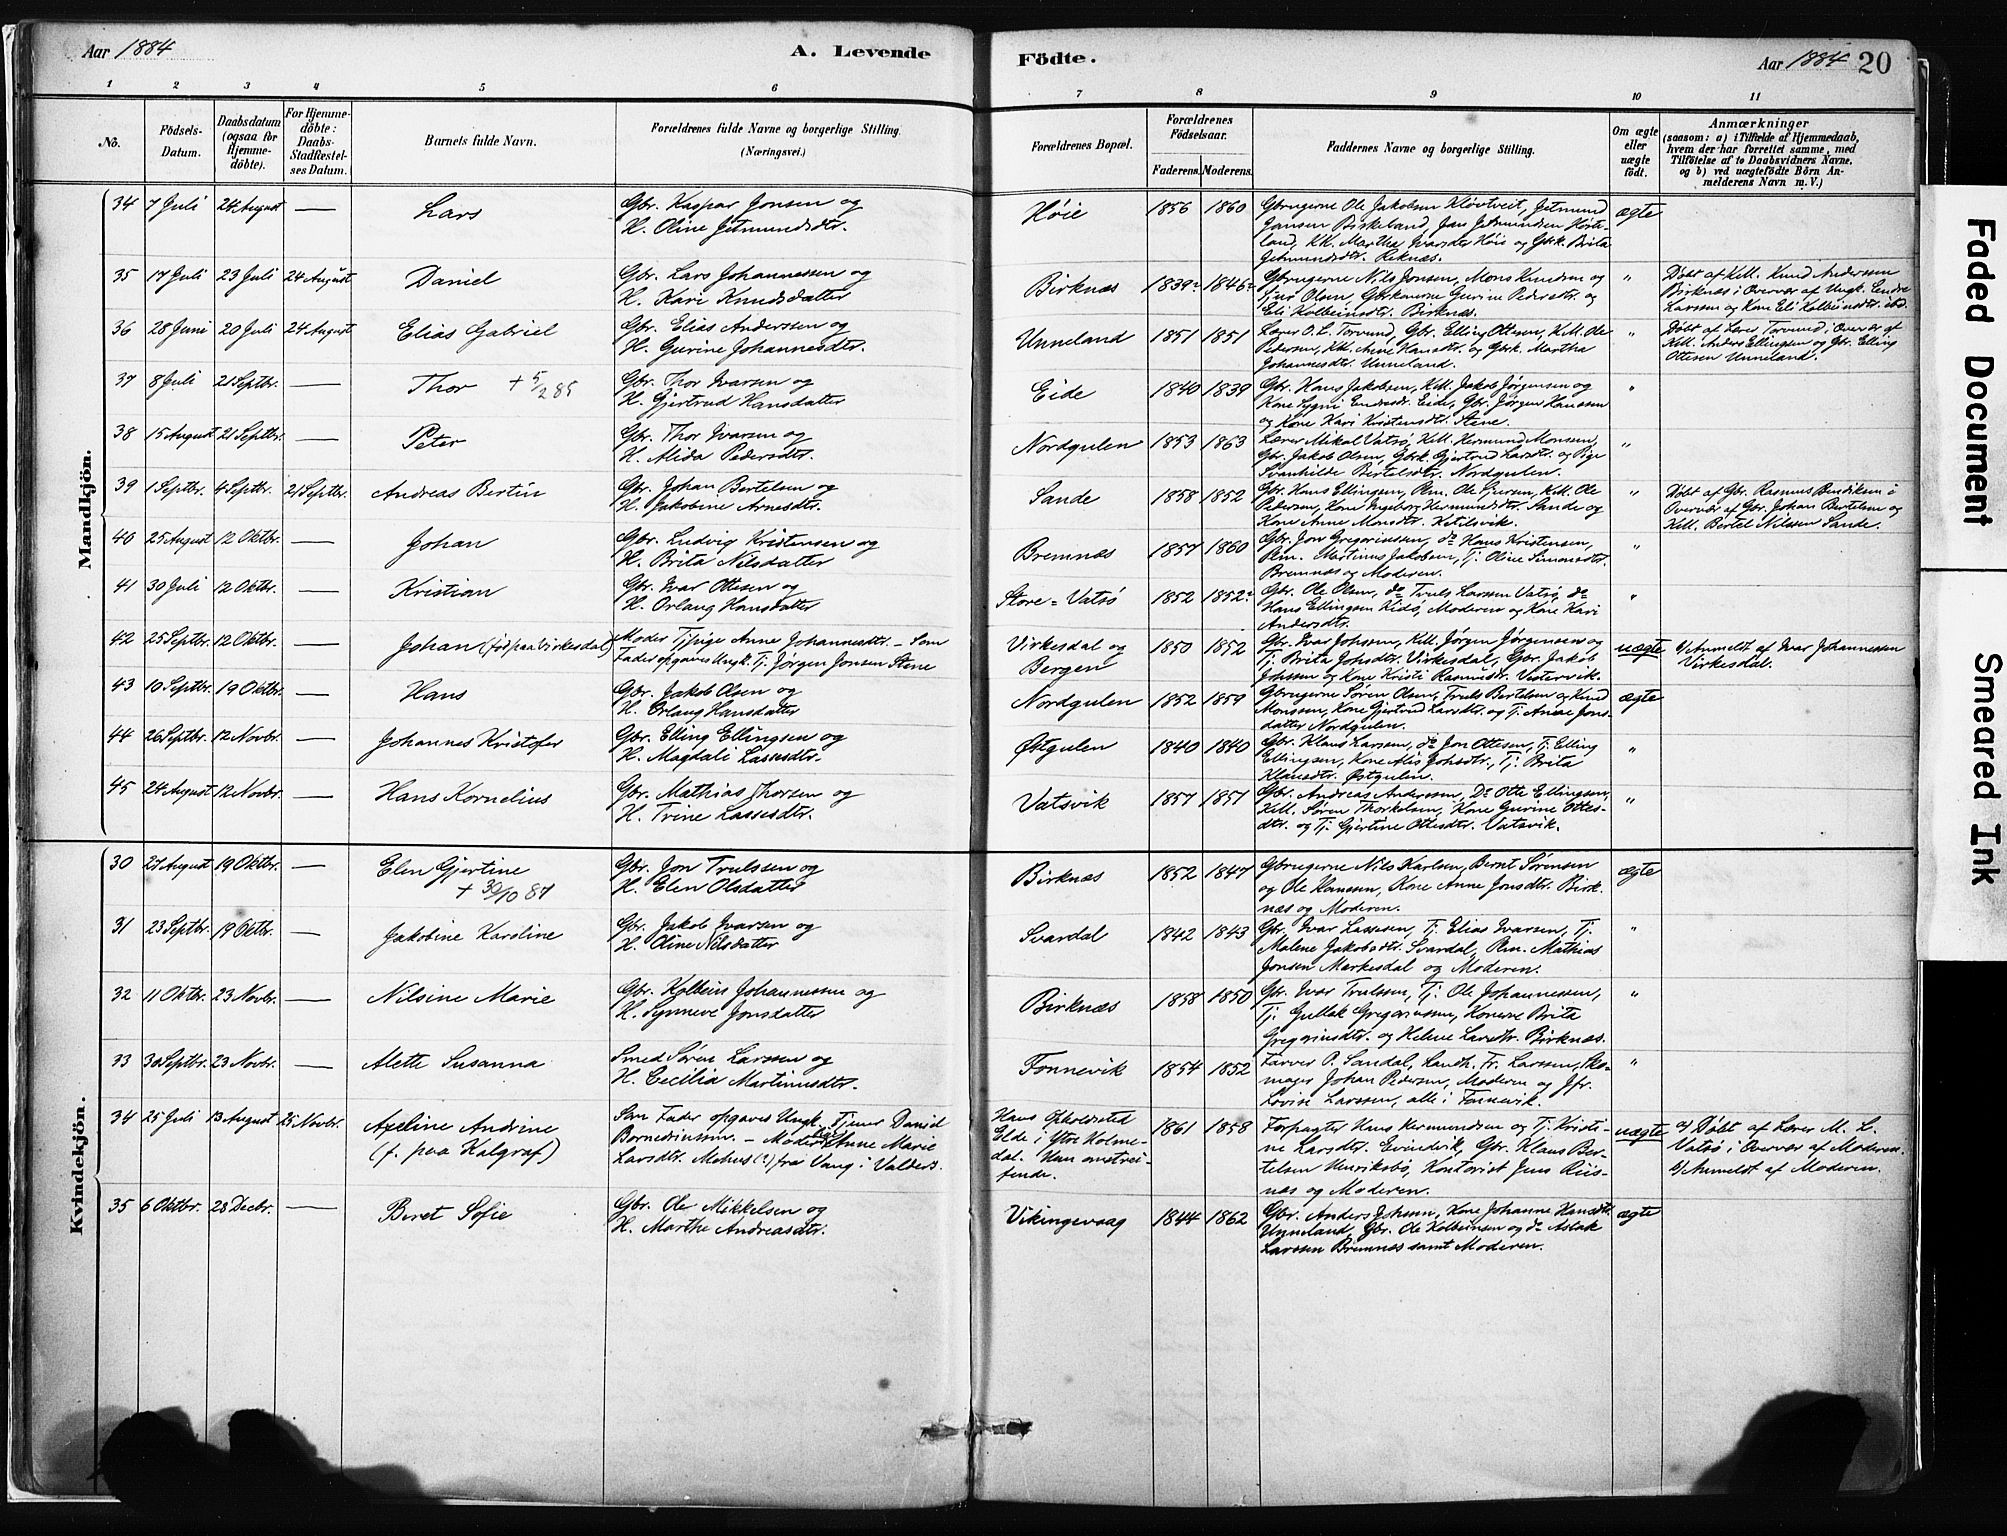 Aar 1884
A. Levende
Födte.
Aar 1884 20
1 2 3 4 5 6 7 8 9 10 11
No.
Födsels-
Datum.
Daabsdatum
(ogsaa for
Hjemme-
döbte).
For Hjemme-
döbte:
Daabs-
Stadfæstel-
ses Datum.
Barnets fulde Navn.
Forældrenes fulde Navne og borgerlige Stilling.
(Næringsvei.)
Forældrenes Bopæl.
Forældrenes
Födselsaar.
Faderens. Moderens.
Faddernes Navne og borgerlige Stilling.
Om ægte
eller
uægte
födt.
Anmærkninger
(saasom: a) i Tilfælde af Hjemmedaab,
hvem der har forrettet samme, med
Tilföielse af to Daabsvidners Navne,
og b) ved uægtefödte Börn An-
melderens Navn m. V.)
Mandkjön.
34 7 Juli 24 August — Lars
Gbr. Kaspar Jonsen og
H. Oline Jetmundsdtr.
Høie 1856 1860
Gbrugerne Ole Jakobsen Kløvtveit, Jetmund
Jonsen Birkeland, Jens Jetmundsen Høie-
land, KK. Martha Ivarsdtr Høie og Gbrk. Brita
Jetmundsdtr. Reknæs.
ægte
35 17 Juli 23 Juli 24 August Daniel
Gbr. Lars Johannessen og
H. Kari Knudsdatter
Birknæs 1839 1846
Gbrugerne Nils Jonsen, Mons Knudsen og
Sjur Olsen, Gbrkonerne Gurine Pedersdtr. og
Eli Kolbeinsdtr. Birknæs.
"
Døbt af Kell. Knud Anderssen
Birknæs i Overvær af Ungk. Endre
Larssen og Kone Eli Kolbeinsdtr. ibd.
36 28 Juni 20 Juli 24 August Elias Gabriel
Gbr. Elias Anderssen og
H. Gurine Johannesdtr.
Unneland 1851 1851
Lærer O. L. Torvund, Gbr. Elling Ottesen, Kell. Ole
Pedersen, KK. Anne Hansdtr. og Gbrk. Martha
Johannesdtr. Unneland.
"
Døbt af Lærer Torvund i Overvær af
Kell. Anders Ellingsen og Gbr. Elling
Ottesen Unneland.
37 8 Juli 21 Septbr. — Thor + 5/2 85
Gbr. Thor Ivarsen og
H. Gjertrud Hansdatter
Eide 1840 1839
Gbr. Hans Jakobsen, Kell. Jakob Jørgensen og
Kone Sygni Endresdr. Eide, Gbr. Jørgen Hanssen
og Kone Kari Kristensdtr. Stene.
"
38 15 August 21 Septbr. — Peter
Gbr. Thor Ivarsen og
H. Alida Pedersdtr.
Nordgulen 1853 1863
Lærer Mikal Vatsø, Kell. Hermund Monsen,
Gbr. Jakob Olsen, Gbrk. Gjertrud Larsdtr. og Pige
Svanhilde Bertelsdtr. Nordgulen.
"
39 1 Septbr. 4 Septbr. 21 Septbr. Andreas Bertin
Gbr. Johan Bertelsen og
H. Jakobine Arnesdtr.
Sande 1858 1852
Gbr. Hans Ellingsen, Rm. Ole Sjursen, Kell. Ole
Pedersen, Kone Ingeborg Hermundsdtr. Sande og
Kone Anne Monsdtr. Ketilsvik.
"
Døbt af Gbr. Rasmus Bendiksen i
Overvær af Gbr. Johan Bertelsen og
Kell. Bertel Nilssen Sande.
40 25 August 12 Oktbr. — Johan
Gbr. Ludvig Kristensen og
H. Brita Nilsdatter
Bremnæs 1857 1860
Gbr. Jon Gregoriussen, do Hans Kristensen,
Rm. Martinus Jakobsen, Tj. Oline Simonsdtr.
Bremnæs og Moderen.
"
41 30 Juli 12 Oktbr. — Kristian
Gbr. Ivar Ottesen og
H. Orlaug Hansdatter
Store=Vatsø 1852 1852
Gbr. Ole Olsen, do Truls Larssen Vatsø, do
Hans Ellingsen Kidø, Moderen og Kone Kari
Andersdtr.
"
42 25 Septbr. 12 Oktbr. — Johan (fød paa Virkesdal)
Moder Tj.pige Anne Johannesdtr. – Som
Fader opgaves Ungk. Tj. Jørgen Jonsen Stene
Virkesdal og
Bergen
1850 1852
Gbr. Ivar Johssen, Kell. Jørgen Jørgensen og
Tj. Brita Johsdtr. Virkesdal, Gbr. Jakob
Johssen og Kone Kristi Rasmusdtr. Vestervik.
uægte
b/ Anmeldt af Ivar Johannessen
Virkesdal.
43 10 Septbr. 19 Oktbr. — Hans
Gbr. Jakob Olsen og
H. Orlaug Hansdatter
Nordgulen 1852 1859
Gbrugerne Søren Olsen, Truls Bertelsen og Knud
Monssen, Kone Gjertrud Larsdtr. og Tj. Anne Jons-
datter Nordgulen.
ægte
44 26 Septbr. 12 Novbr. — Johannes Kristofer
Gbr. Elling Ellingsen og
H. Magdali Lassesdtr.
Østgulen 1840 1840
Gbr. Klaus Larssen, do Jon Ottesen, Tj. Elling
Ellingsen, Kone Alis Johsdtr., Tj. Brita
Klausdtr. Østgulen.
"
45 24 August 12 Novbr. — Hans Kornelius
Gbr. Mathias Thorsen og
H. Trine Lassesdtr.
Vatsvik 1857 1857
Gbr. Andreas Anderssen, Do Otte Ellingsen,
Kell. Søren Thorkelsen, Kone Gurine Ottes-
dtr. og Tj. Gjertine Ottesdtr. Vatsvik.
"
Kvindekjön.
30 27 August 19 Oktbr. — Elen Gjertine
+ 30/10 87
Gbr. Jon Trulssen og
H. Elen Olsdatter
Birknæs 1852 1847
Gbrugerne Nils Karlsen, Bernt Sørensen
og Ole Hanssen, Kone Anne Jonsdtr. Birk-
næs og Moderen.
ægte
31 23 Septbr. 19 Oktbr. — Jakobine Karoline
Gbr. Jakob Ivarsen og
H. Oline Nilsdatter
Svardal 1842 1843
Gbr. Ivar Lassesen, Tj. Elias Ivarsen, Tj.
Malene Jakobsdtr. Svardal, Rm. Mathias
Jonsen Merkesdal og Moderen.
"
32 11 Oktbr. 23 Novbr. — Nilsine Marie
Gbr. Kolbein Johannessen og
H. Synneve Jonsdatter
Birknæs 1858 1850
Gbr. Ivar Trulssen, Tj. Ole Johannessen,
Tj. Gullak Gregoriussen, Konerne Brita
Gregoriusdtr. og Helene Larsdtr. Birknæs.
"
33 30 Septbr. 23 Novbr. — Alette Susanna
Smed Søren Larssen og
H. Cecilia Martinusdtr.
Fonnevik 1854 1852
Farver P. Sandal, Landh. Fr. Larssen, Sko-
mager Johan Pedersen, Moderen og Jfr.
Lovise Larssen, alle i Fonnevik.
"
34 25 Juli 13 August 25 Novbr. Axeline Andrine
(f. paa Kalgraf)
Som Fader opgaves Ungk. Tjener Daniel
– Moder Anne Marie
Larsdtr. Mohus (?) fra Vang i Valders.
Hans Opholdssted
Elde i Ytre Holme-
dal. Hun omstrei-
fende.
1861 1858
Forpagter Hans Hermundsen og Tj. Kristi-
ne Larsdtr. Evindvik, Gbr. Klaus Ber-
telsen Henriksbø, Kontorist Jens Riis-
næs og Moderen.
uægte
a/ Døbt af Lærer M. L.
Vatsø i Overvær af Moderen.
b/ Anmeldt af Moderen.
35 6 Oktbr. 28 Decbr. — Beret Sofie
Gbr. Ole Mikkelsen og
H. Marthe Andreasdtr.
Vikingevaag 1844 1862
Gbr. Anders Johssen, Kone Johanne Hansdtr.
Unneland, Gbr. Ole Kolbeinsen og do Aslak
Larssen Bremnæs samt Moderen.
ægte
Faded Document
Smeared Ink